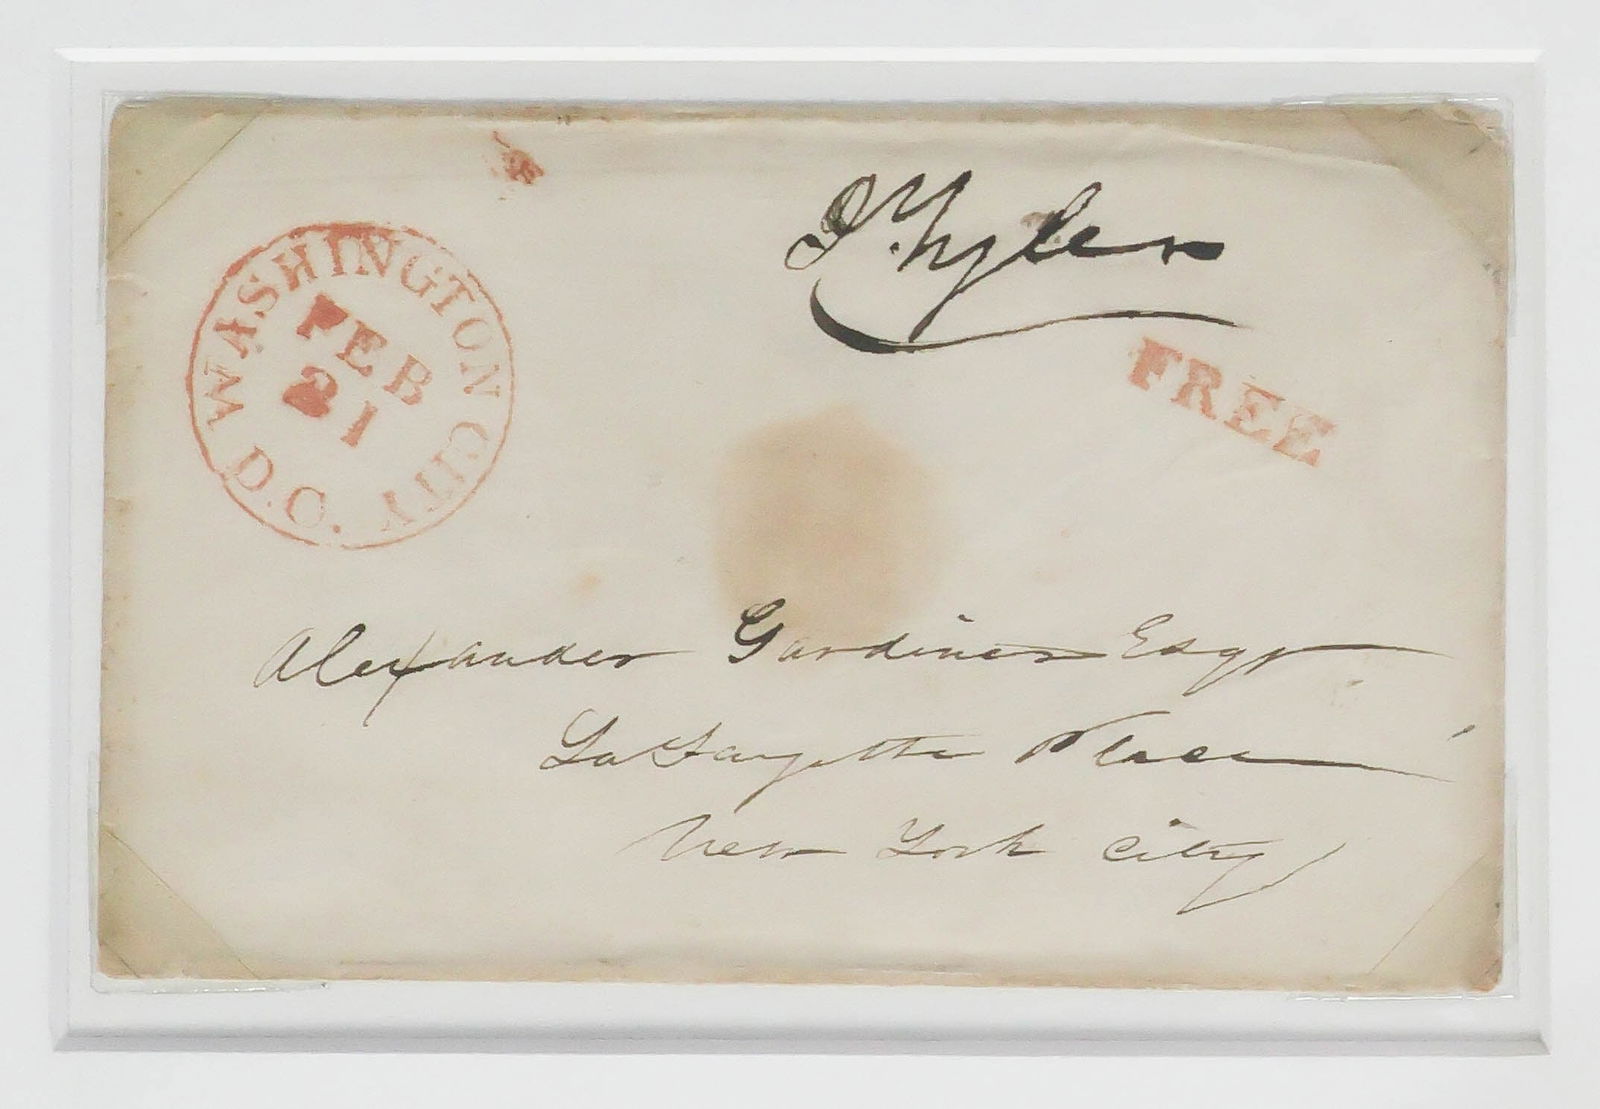 J. Tyler
FREE
WASHINGTON CITY
D.C.
FEB
21
Alexander Gardiner Esqr
LaFayette Place
New York City